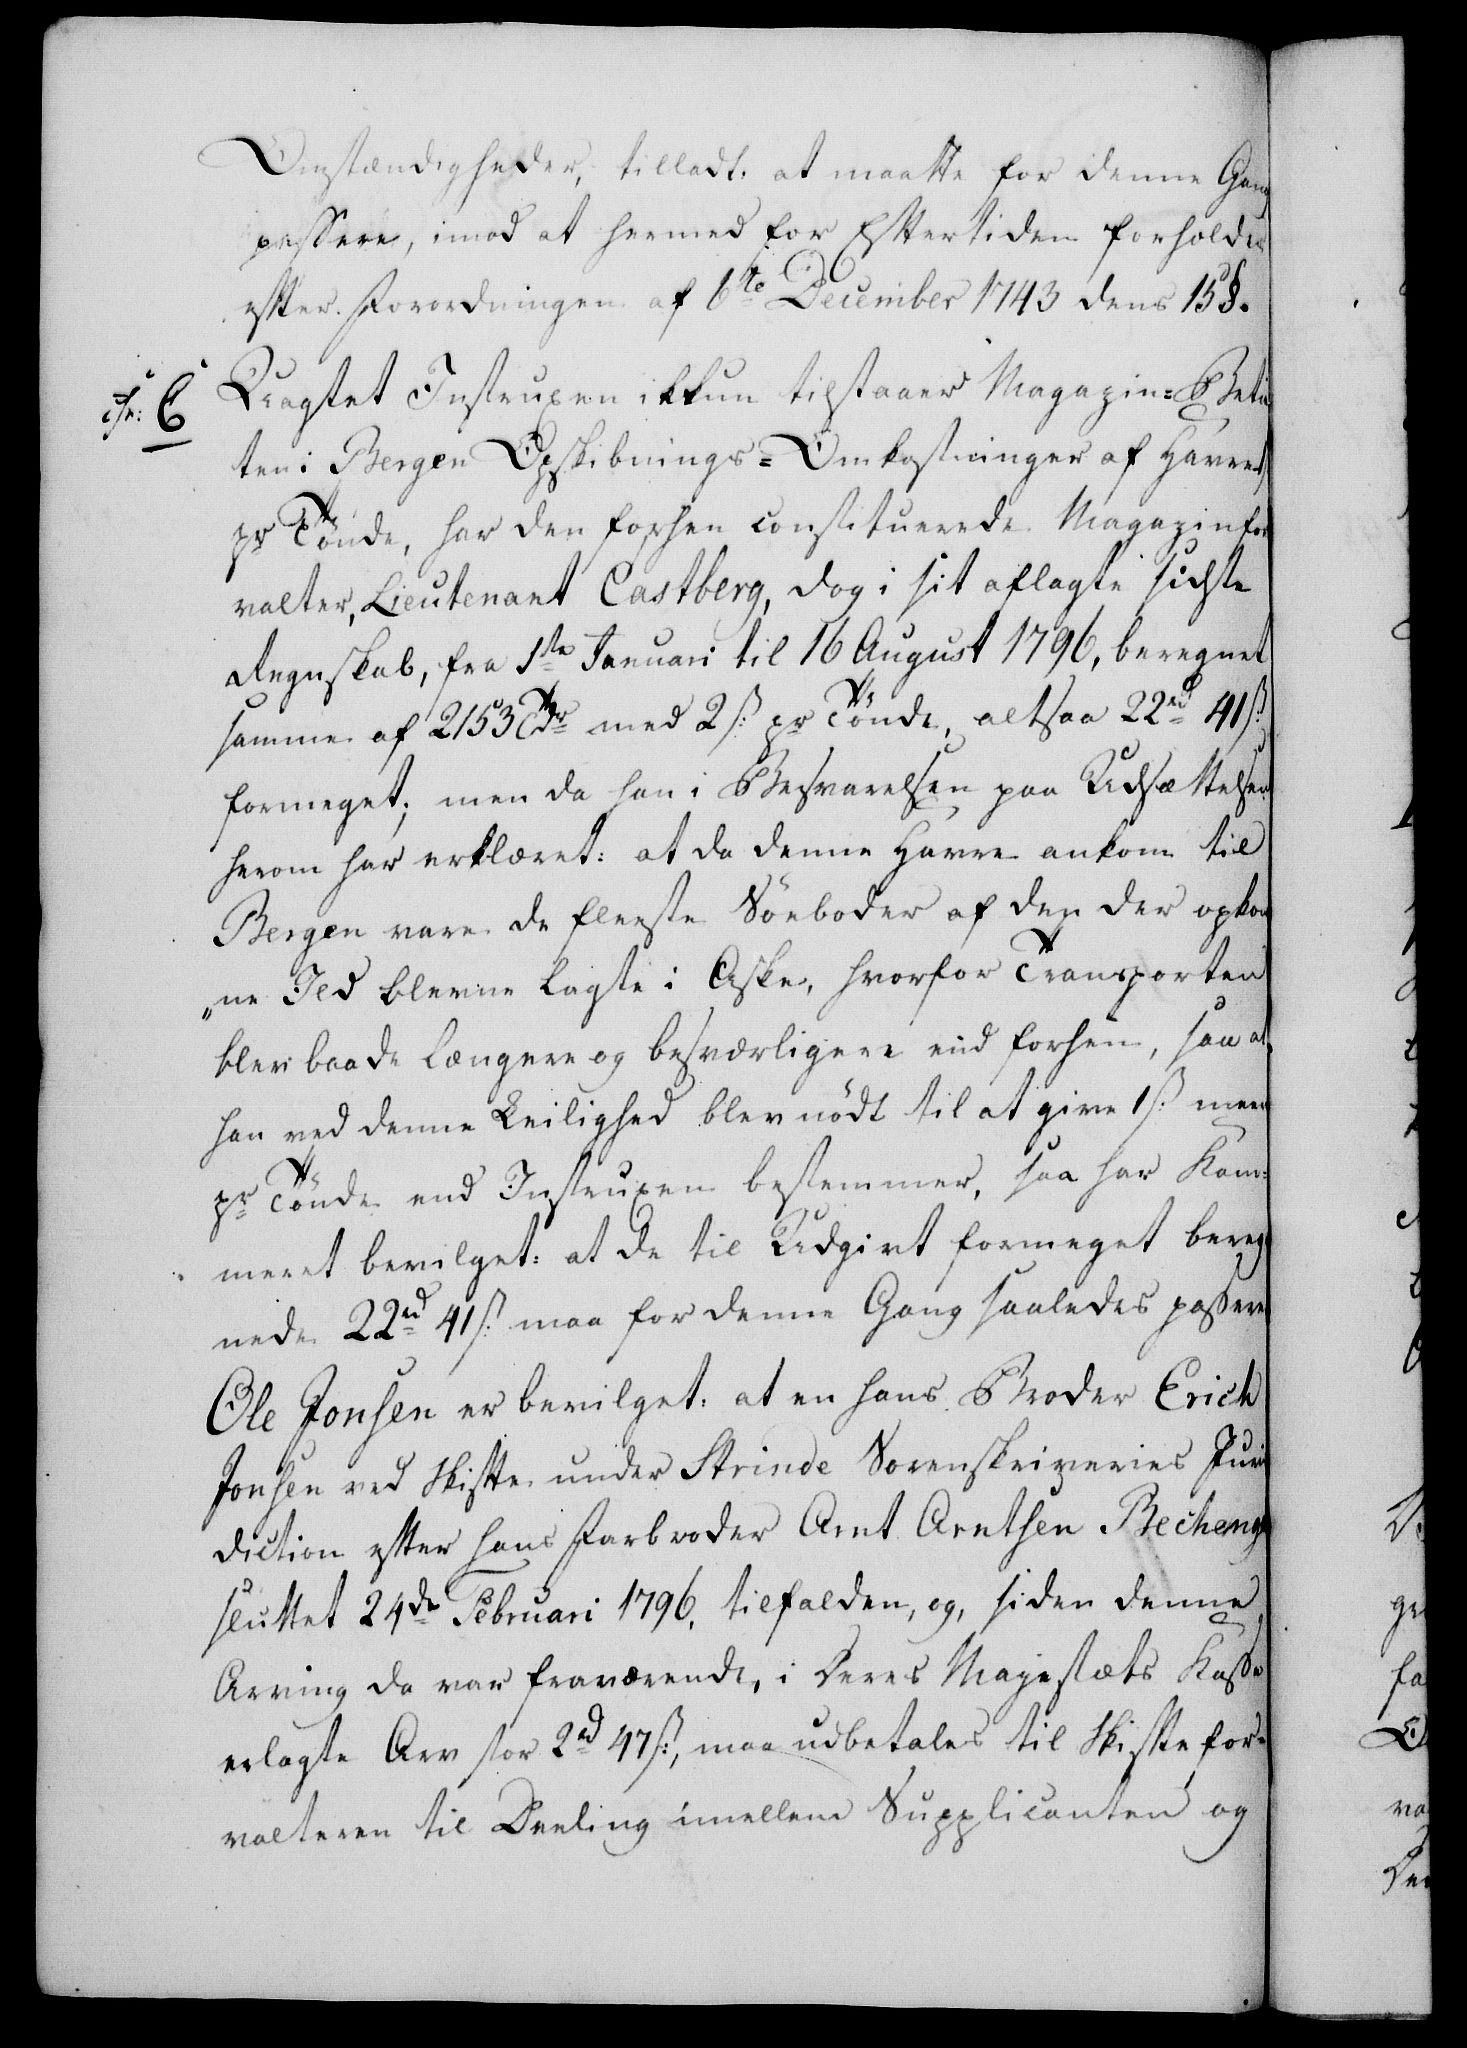 Omstændigheder, tilladt: at maatte for denne Gang
passere, imod at hermed for Efttertiden forholdes
efter Forordningen af 6te December 1743 dens 15 §.
Uagtet Instruxen ikkun tilstaaer Magazin=Betien
ten i Bergen Opskibnings=Omkostninger af Havre
pr Tönde, har den forhen constituerede Magazinfor
valter, Lieutenant Castberg, dog i sit aflagte sidste
Regnskab, fra 1ste Januari til 16 August 1796, beregnet
samme af 2153 Tdr med 2 ß: pr Tönde, altsaa 22rd 41 ß:
formeget; men da han i Besvarelsen paa Udsættelsen
herom har erklæret: at da denne Havre ankom til
Bergen vare de fleeste Söeboder af den der opkom
„ne Ild blevne lagte i Aske, hvorfor Transporten
blev baade længere og besværligere end forhen, saa at
han ved denne Leilighed blev nödt til at give 1 ß: meer
pr Tönde end Instruxen bestemmer, saa har Kam=
meret bevilget: at de til Udgivt formeget bereg
nede 22rd 41 ß: maa for denne Gang saaledes passere
Ole Jonsen er bevilget: at en hans Broder Erich
Jonsen ved Skifte under Strinde Sorenskriveries Juris
diction efter hans Farbroder Arnt Arntsen Becheng
sluttet 24de Februari 1796, tilfalden, og, siden denne
Arving da var fraværende, i Deres Majestæts Kasse
erlagte Arv stor 2rd 47 ß:, maa udbetales til Skiftefor=
valteren til Deeling imellem Supplicanten og